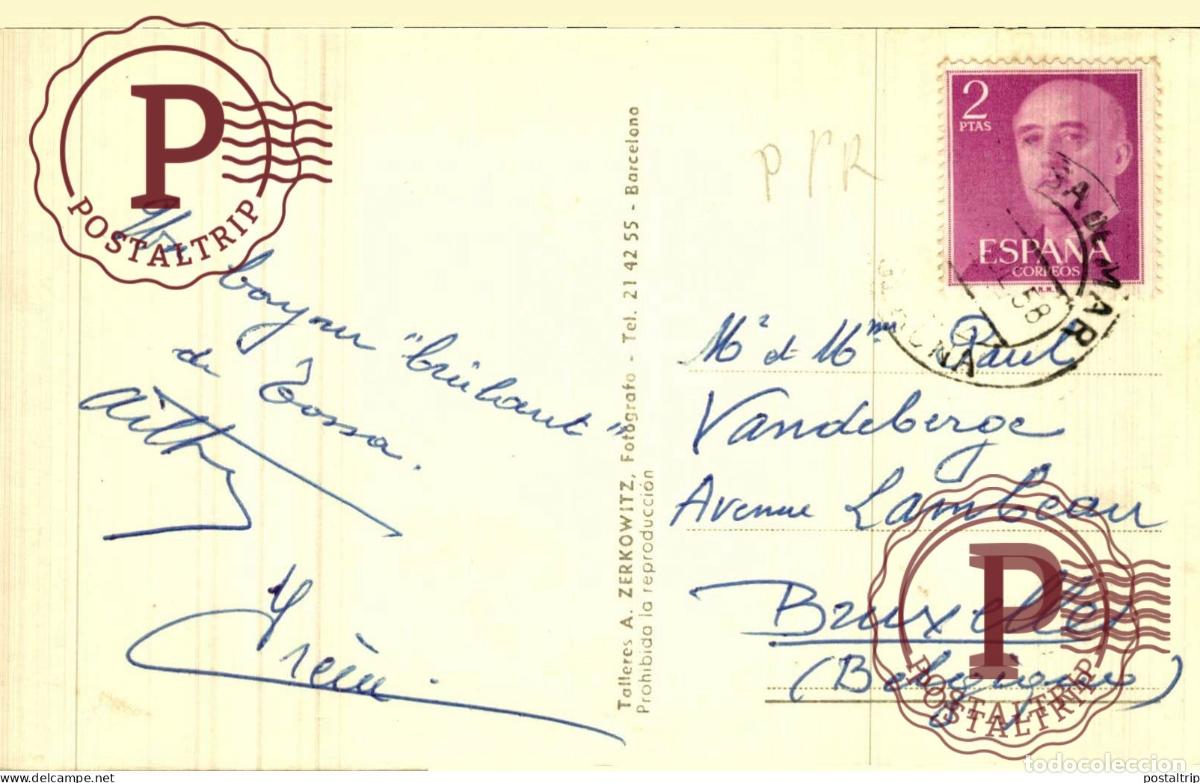 P
POSTALTRIP
Un
bonjour "brûlant"
de Tossa.
Irène
Talleres A. ZERKOWITZ, Fotógrafo - Tel. 21 42 55 - Barcelona
Prohibida la reproducción
P / R
2
PTAS
ESPAÑA
CORREOS
58
Mr et Mme Paul
Vandeberge
Avenue Lambeau
Bruxelles
(Belgique)
P
POSTALTRIP
POSTALTRIP
todocoleccion
www.delcampe.net
postaltrip